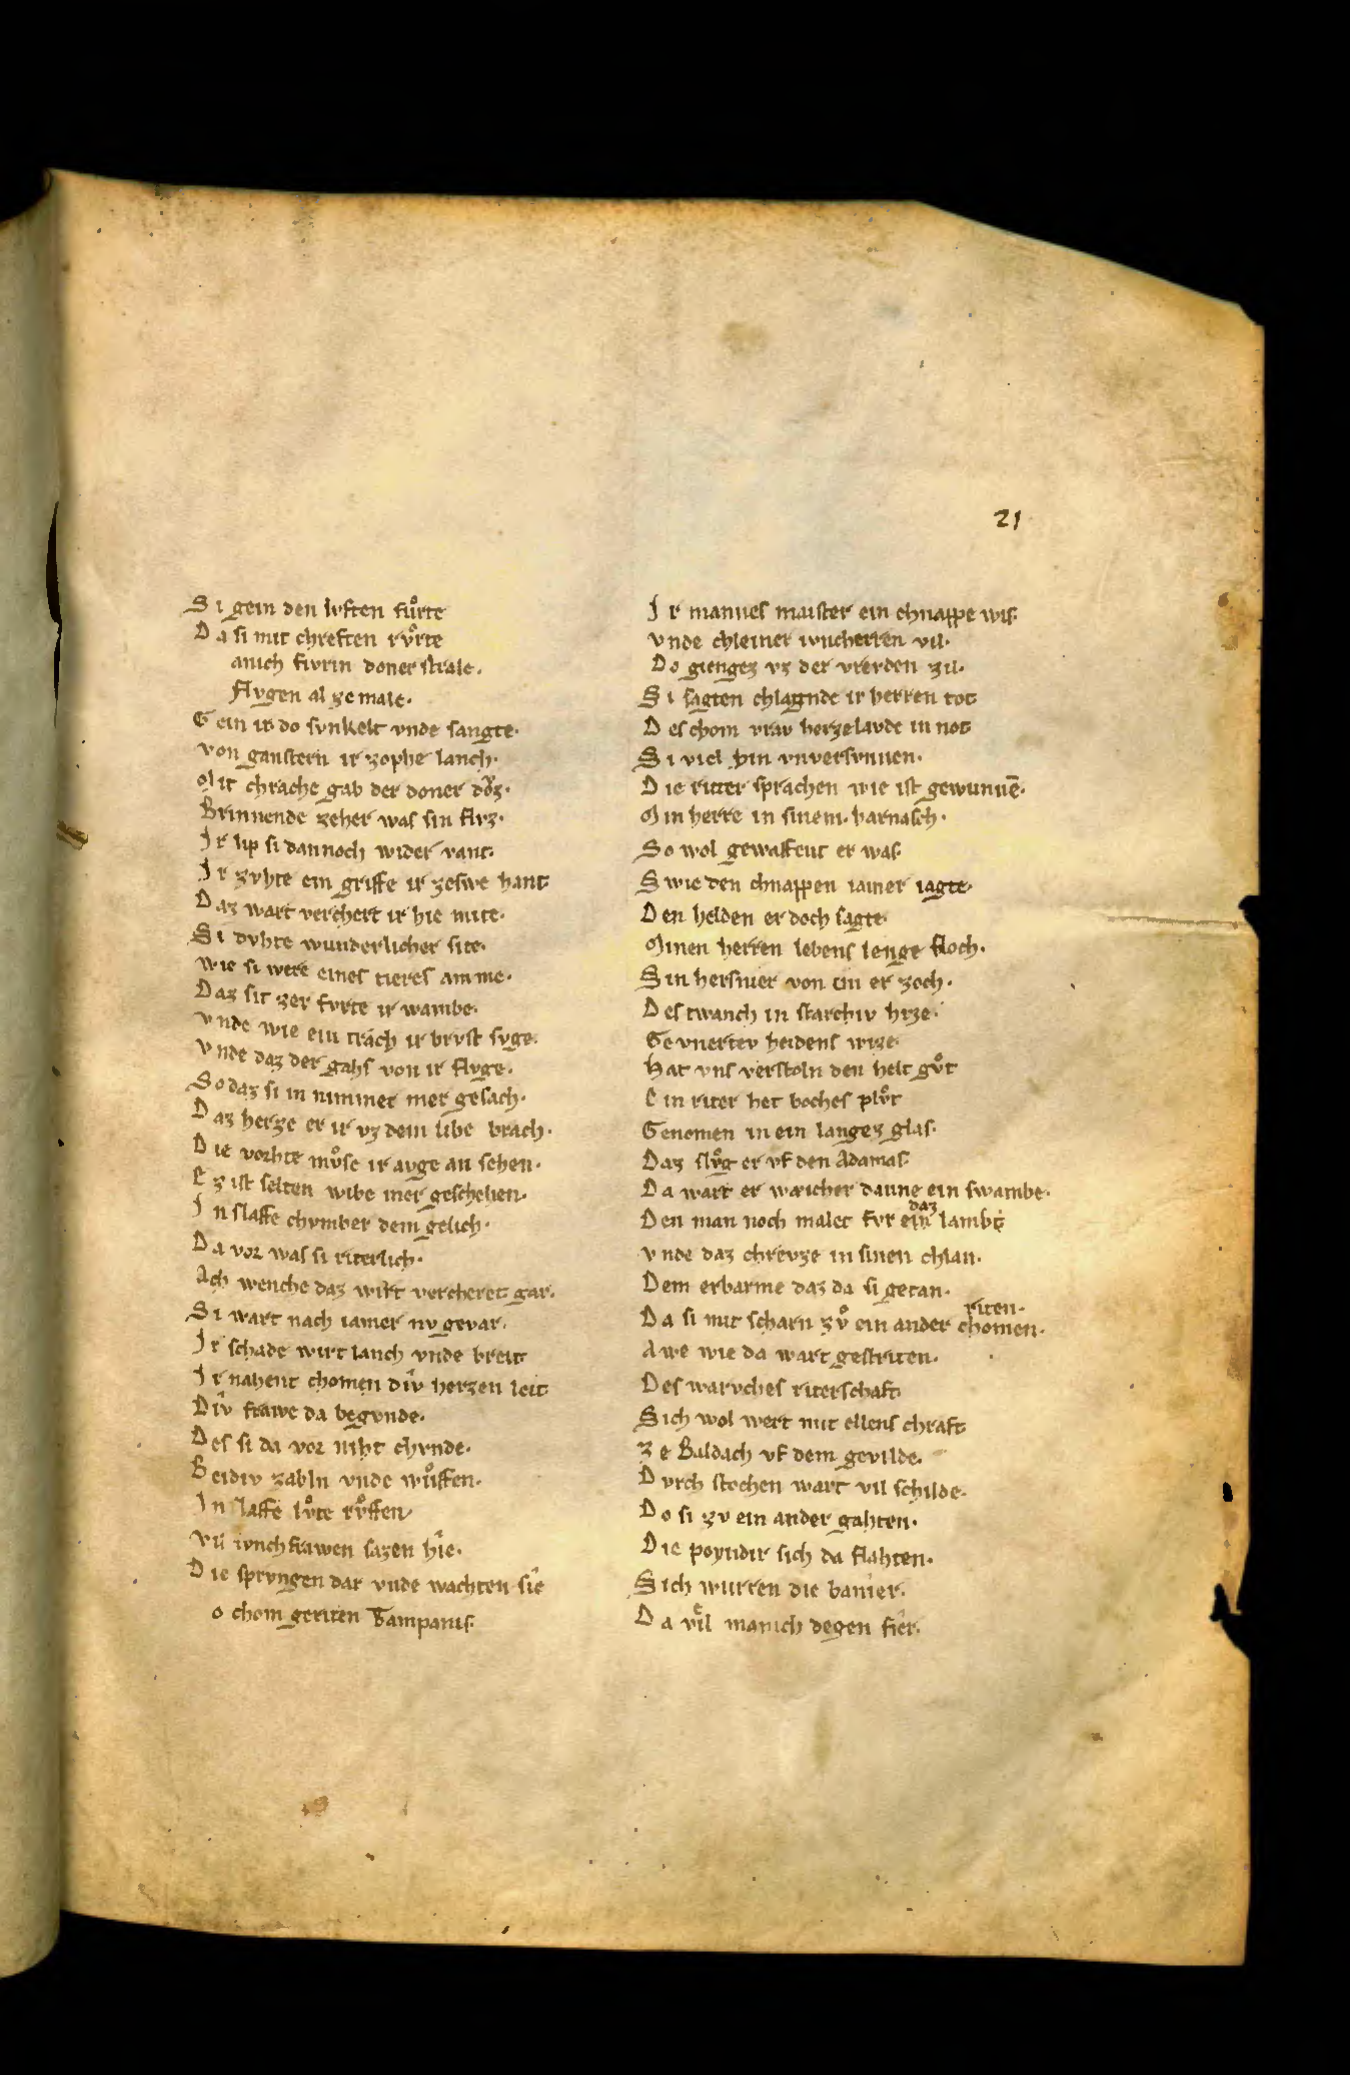 21
Si gein den lvften fuͦrte
Da si mit chreften rvͦrte
anich fivrin doner strale.
flvgen al ze male.
Gein ir do svnkelt vnde sangte.
von ganstern ir zophe lanch.
Mit chrache gab der doner doͮz.
Brinnende zeher was sin flvz.
Ir lip si dannoch wider vant.
Ir zvhte ein griffe ir zeswe hant
Daz wart verchert ir hie mite.
Si dvhte wunderlicher site.
wie si were eines tieres amme.
Daz sit zer fvrte ir wambe.
vnde wie ein trach ir brvst svge.
vnde daz der gahs von ir flvge.
So daz si in nimmer mer gesach.
Daz herze er ir vz dem libe brach.
Die vorhte mvͦse ir avge an sehen.
Ez ist selten wibe mer geschehen.
In slaffe chvmber dem gelich.
Da vor was si riterlich.
Ach wenche daz wirt vercheret gar.
Si wart nach iamer nv gevar.
Ir schade wirt lanch vnde breit
Ir nahent chomen div herzen leit
Div frawe da begvnde.
Des si da vor niht chvnde.
Beidiv zabln vnde wuͦffen.
In slaffe lvͦte rvͦffen
vil ivnchfrawen sazen hie.
Die sprvngen dar vnde wachten sie
o chom geriten Tampanis.
Ir mannes maister ein chnappe wis.
vnde chleiner ivncherren vil.
Do gienges vz der vrevden zil.
Si sagten chlagnde ir herren tot
Des chom vrav herzelavde in not
Si viel hin vnversvnnen.
Die ritter sprachen wie ist gewunnē.
Min herre in sinem. harnasch.
So wol gewaffent er was.
Swie den chnappen iamer iagte.
Den helden er doch sagte.
Minen herren lebens lenge floch.
Sin hersnier von im er zoch.
Des twanch in starchiv hize.
Gevnertev heidens wize.
Hat vns verstoln den helt gvͦt
Ein riter het boches plvͦt
Genomen in ein langez glas.
Daz slvͦg er vf den Adamas.
Da wart er waicher danne ein swambe.
daz
Den man noch malet fvr ein lambe
vnde daz chrevze in sinen chlan.
Dem erbarme daz da si getan.
riten.
Da si mit scharn zvͦ ein ander chomen.
Awe wie da wart gestriten.
Des warvches riterschaft
Sich wol wert mit ellens chraft
Ze Baldach vf dem gevilde.
Dvrch stochen wart vil schilde.
Do si zv ein ander gahten.
Die poyndir sich da flahten.
Sich wurren die banier.
Da viͤl manich degen fier.